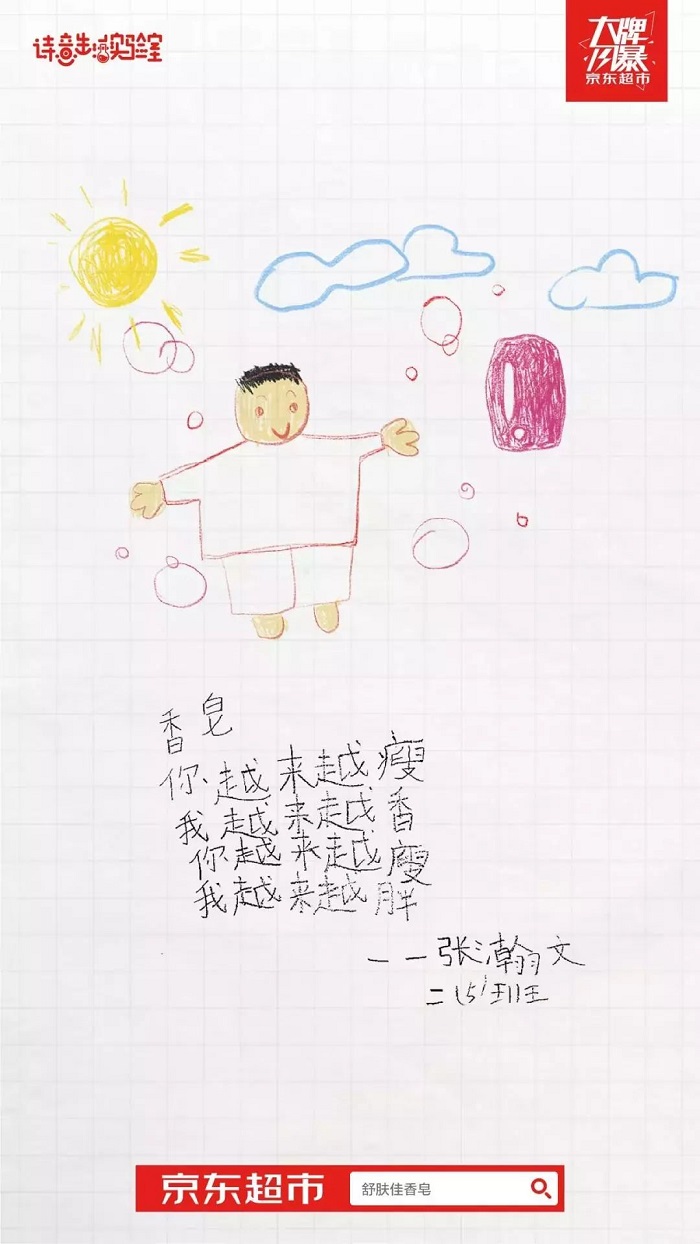 诗意生活实验室
大牌
风暴
京东超市
香皂
你越来越瘦
我越来越香
你越来越瘦
我越来越胖
——张瀚文
二(5)班
京东超市
舒肤佳香皂